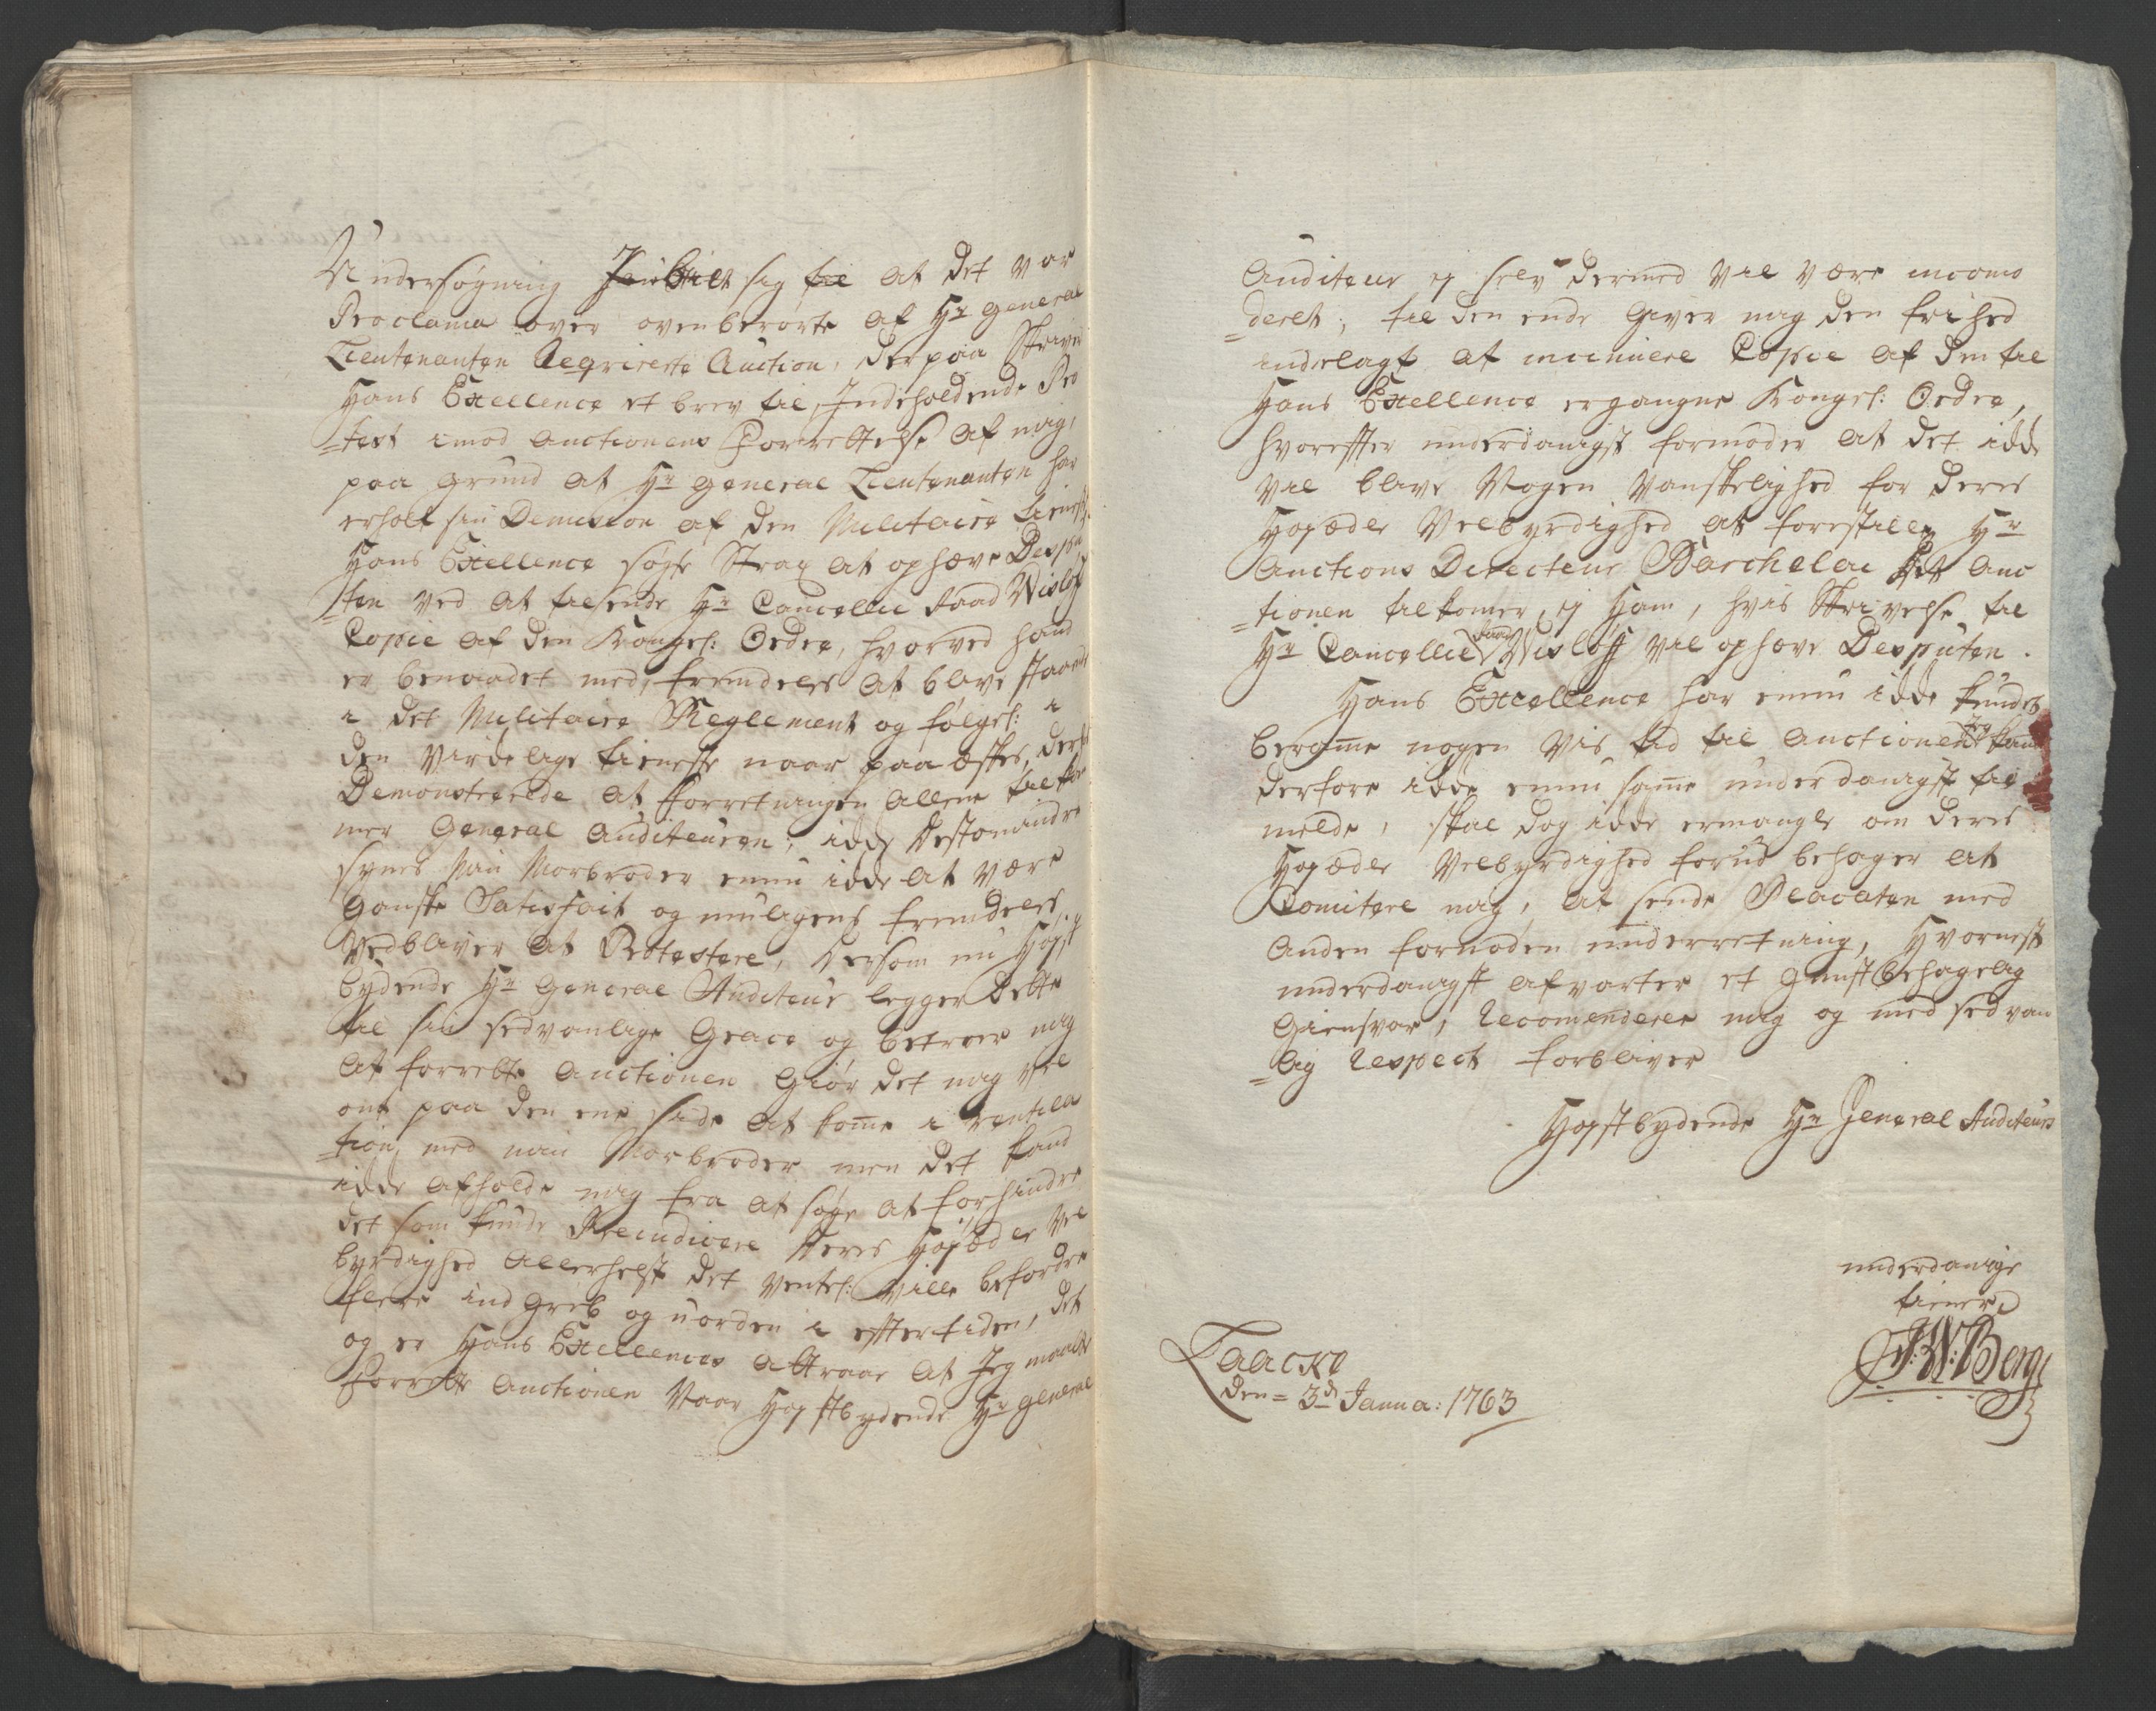 Undersøgning Indbilt sig til at det var
Proclama over ovenberørte af Hr General
Lieutenanten Reqvirerte Auction, derpaa Skriver
Hans Excellence et brev til, Indeholdende Pro
=test imod Auctionens Forrettelse af mig,
paa grund at Hr General Lieutenanten har
erholt sin Demission af den Militaire tieneste.
Hans Excellence søgte Strax at ophæve Dispu
=ten ved at tilsende Hr Cancellie Raad Wisløff
Copie af den Kongel: Ordre, hvorved hand
er benaadet med, fremdeles at blive staaende
i det Militaire Reglement og følgel: i
den virkelige tieneste naar paa æskes, derfor
Demonstrerede at forretningen allene tilkom
mer General Auditeuren, ikke destomindre
synes Min Morbroder ennu ikke at være
Ganske Satisfait og muligens fremdeles
Vedbliver at Protestere, dersom nu Høyst
bydende Hr General Auditeur legger dette
til sin sedvanlige Grace og betroer mig
at forrette Auctionen giør det mig vel
ont paa den ene side at komme i ventila
=tion med min Morbroder men det kand
ikke afholde mig fra at søge at forhindre
det som kunde Præiudicere Deres Høyædle Vel
byrdighed allerhelst det ventel: ville befordre
flere ind greb og uorden i efftertiden, det
og er Hans Excellences attraae at Jeg maatte
forrette Auctionen Naar Høystbydende Hr General
Auditeur ej selv dermed vil være incomo
=deret, til den ende giver mig den frihed
indelagt at incinuere Copie af den til
Hans Excellence ergangne Kongel: Ordre,
hvoreffter underdanigst formoder at det ikke
vil blive Nogen Vanskelighed for Deres
Høyædle Velbyrdighed at forestille Hr
Auctions Directeur Barchelai At Auc
=tionen tilkommer ej Ham, hvis Skrivelse til
Hr Cancellie Raad Wisløff vil ophæve Disputen.
Hans Excellence har ennu ikke kundet
beramme nogen vis tid til Auctionen Jeg kand
derfore ikke ennu samme underdanigst til
melde, skal dog ikke ermangle om Deres
Høyædle Velbyrdighed forud behager at
Comitere mig, at sende Placaten med
anden fornøden underretning, Hvornest
underdanigst afvarter et Gunstbehagelig
Giensvar, Recomenderer mig og med sedvan
=lig Respect forbliver
Høystbydende Hr General Auditeurs
underdanige
tiener
F: W: Berg
Laacke
den = 3de Janua: 1763